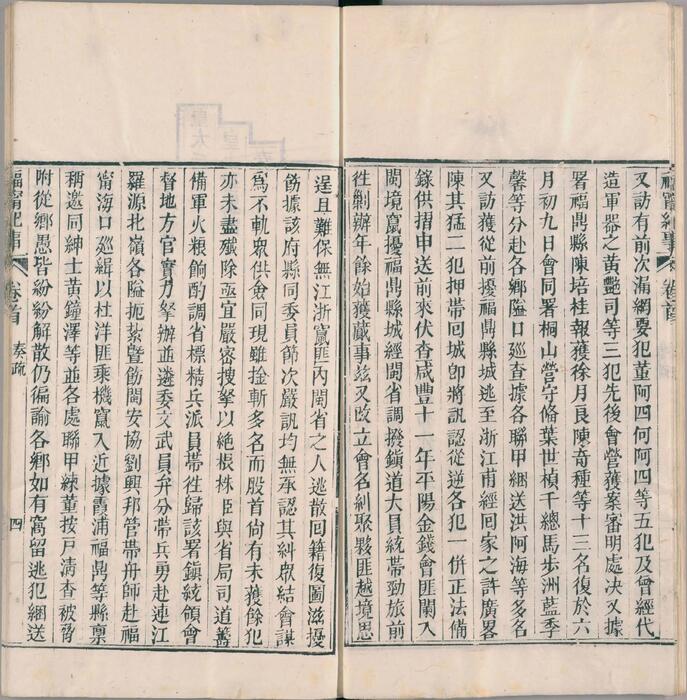 福寧紀事
卷首
又訪有前次漏網要犯董阿四何阿四等五犯及曾經代
造軍器之黃艷司等三犯先後會營獲案審明處决又據
署福鼎縣陳培桂報獲徐月良陳奇種等十三名復於六
月初九日會同署桐山營守俻葉世楨千總馬步洲藍季
馨等分赴各鄉隘口廵查據各聯甲綑送洪阿海等多名
又訪獲從前擾福鼎縣城逃至浙江甫經回家之許廣畧
陳其猛二犯押帶回城卽將訊認從逆各犯一併正法備
錄供摺申送前來伏查咸豐十一年平陽金錢會匪闌入
閩境竄擾福鼎縣城經閩省調撥鎭道大員統帶勁旅前
往剿辦年餘始獲蕆事玆又改立會名糾聚夥匪越境思
逞且難保無江浙竄匪內閩省之人逃散回籍復圖滋擾
飭據該府縣同委員節次嚴訊均無承認其糾眾結會謀
爲不軌眾供僉同現雖拴斬多名而股首尙有未獲餘犯
亦未盡殲除亟宜嚴密搜拏以絕根株臣與省局司道籌
備軍火粮餉酌調省標精兵派員帶往歸該署鎭統領會
督地方官實力拏辦並遴委文武員弁分帶兵勇赴連江
羅源北嶺各隘扼紮曁飭閩安協劉興邦管帶舟師赴福
甯海口廵緝以杜洋匪乘機竄入近據霞浦福鼎等縣稟
稱邀同紳士黃鐘澤等並各處聯甲練董按戶清查被脅
附從鄉愚皆紛紛解散仍徧諭各鄉如有窩留逃犯綑送
福寧紀事
卷首
奏疏
四